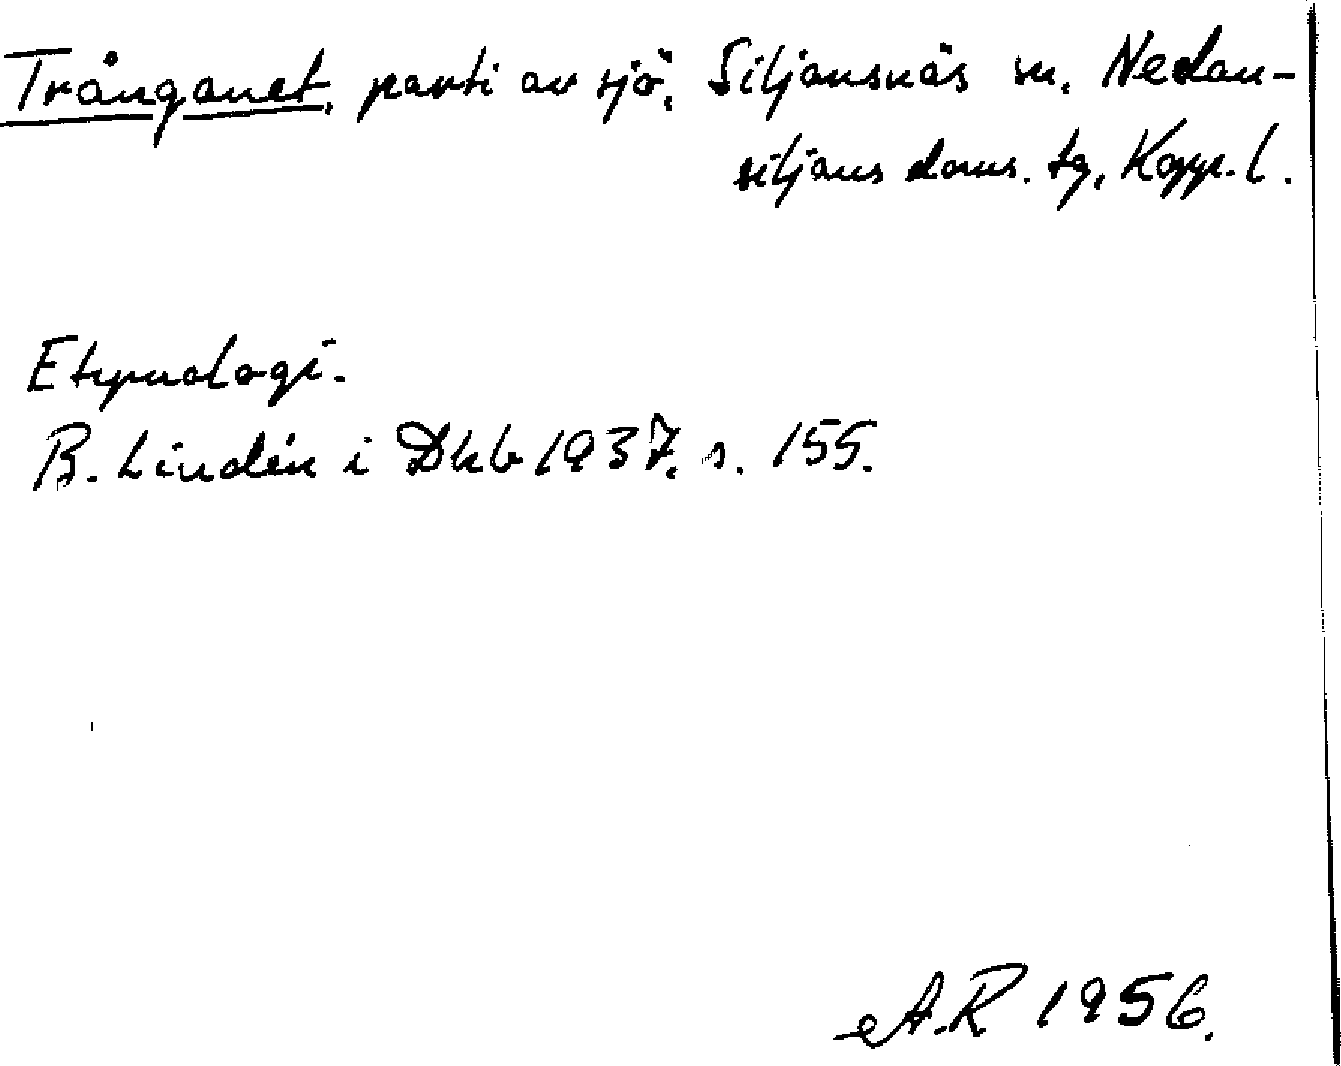 Trånganet, parti av sjö, Siljansnäs sn, Nedan-
siljans doms. tg, Kopp. l.
Etymologi.
B. Lindén i Dhb 1937, s. 155.
A.R 1956.